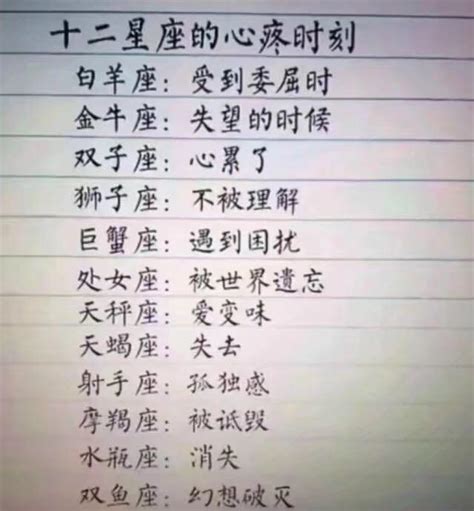 十二星座的心疼时刻
白羊座：受到委屈时
金牛座：失望的时候
双子座：心累了
狮子座：不被理解
巨蟹座：遇到困扰
处女座：被世界遗忘
天秤座：爱变味
天蝎座：失去
射手座：孤独感
摩羯座：被诋毁
水瓶座：消失
双鱼座：幻想破灭